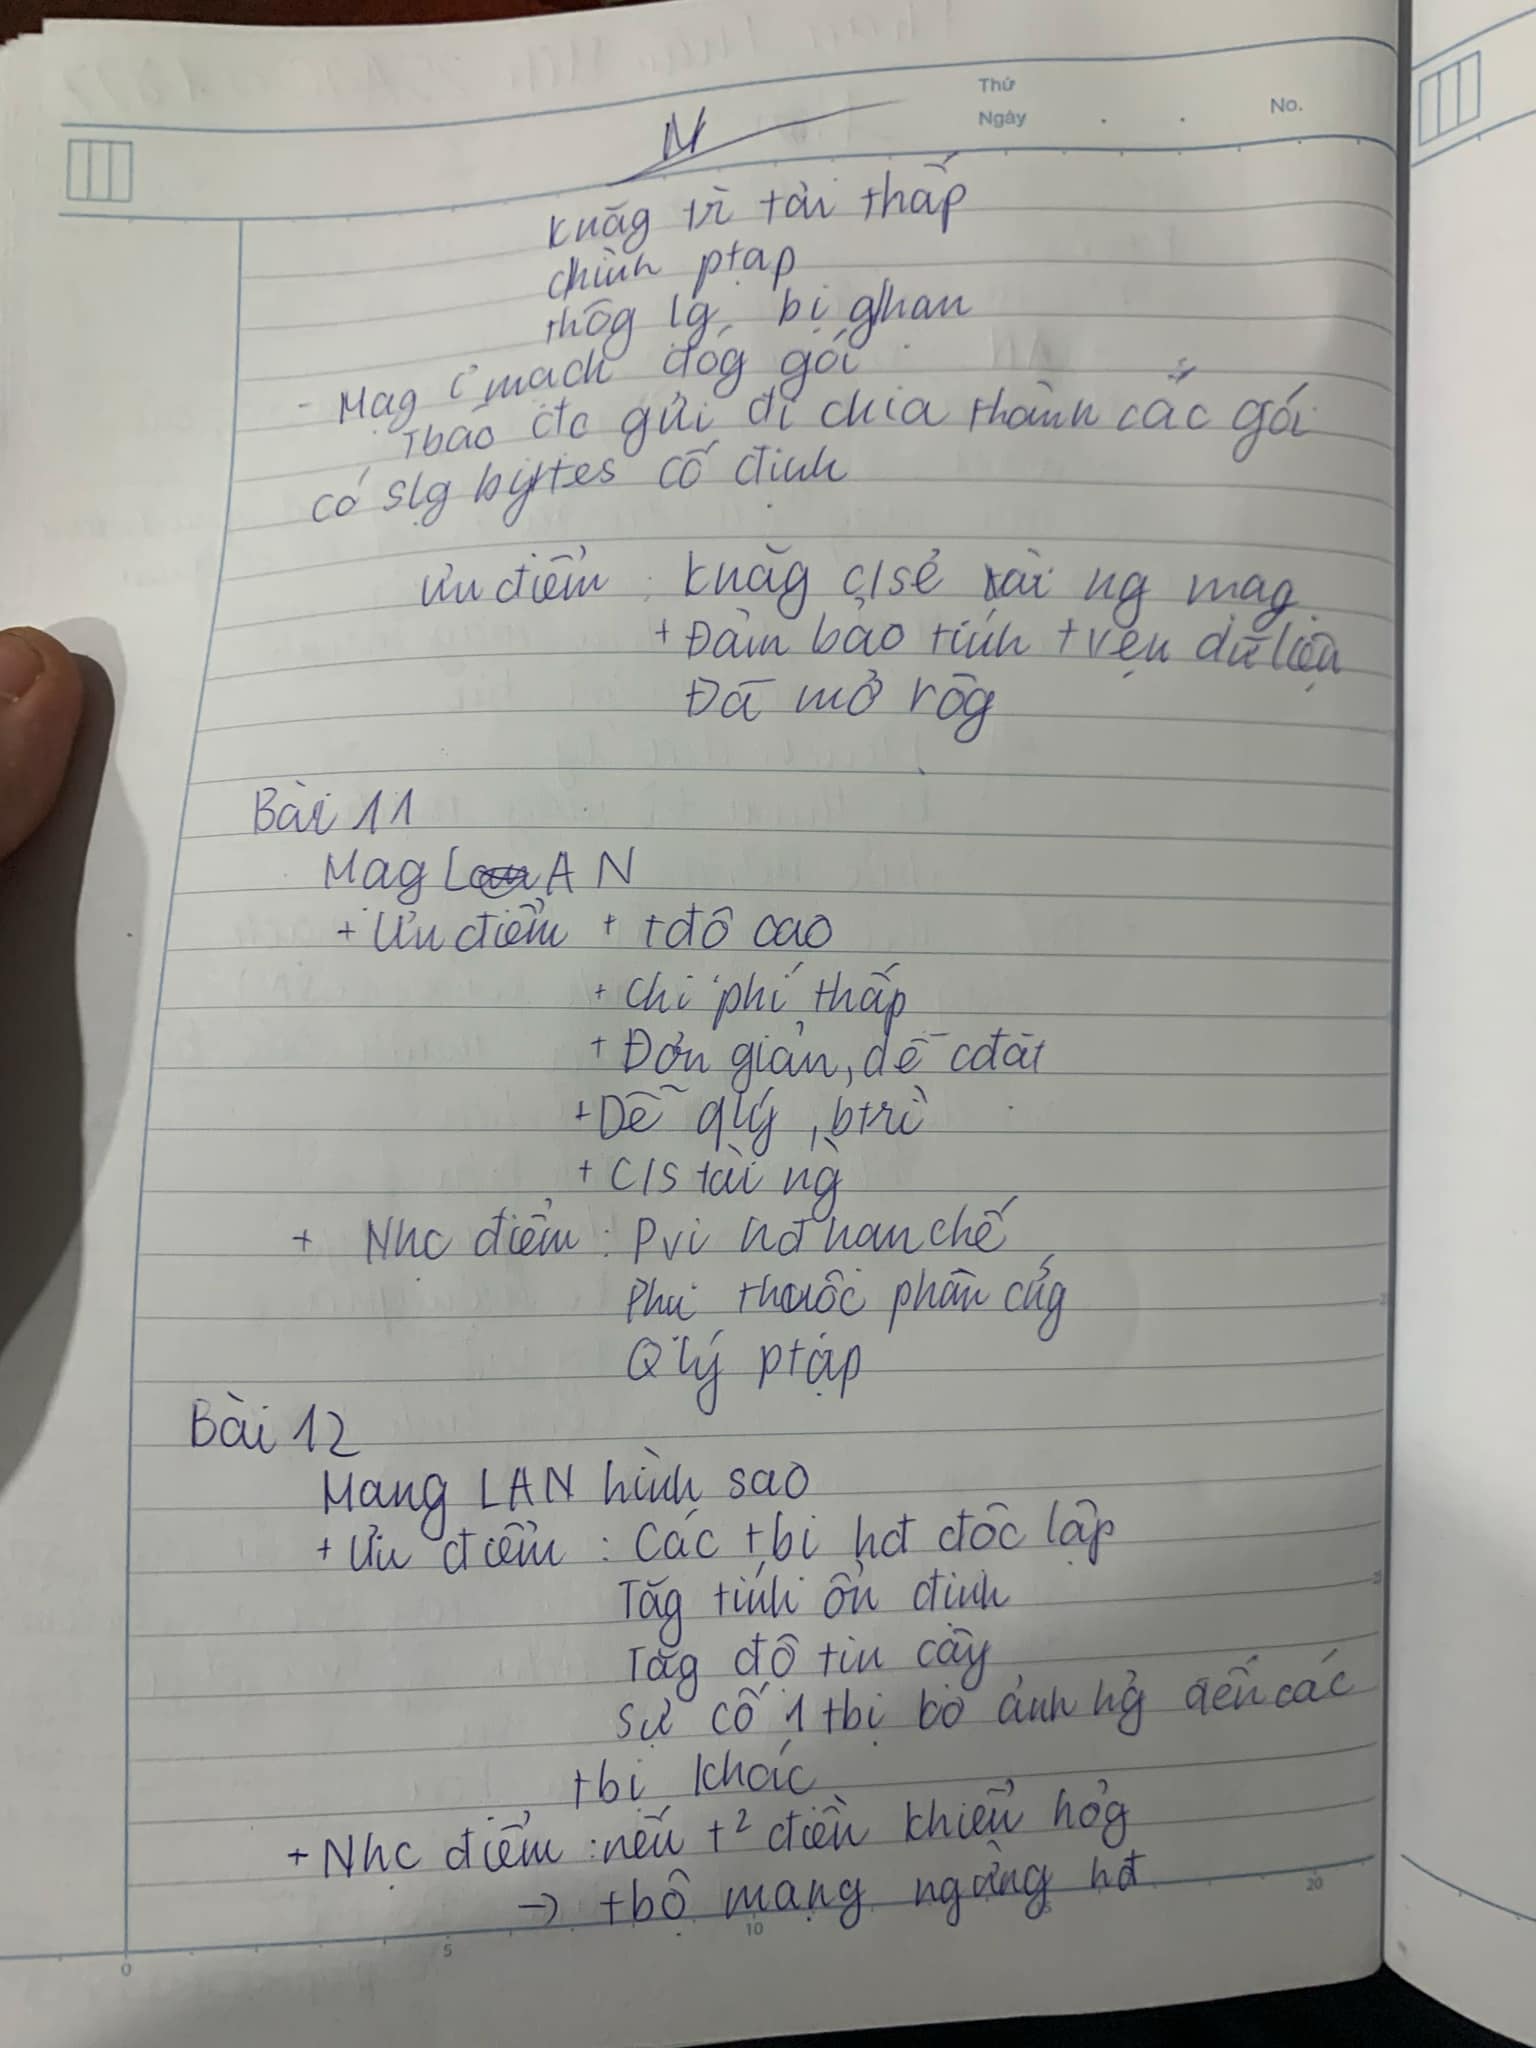 Thứ
Ngày
No.
N
knăg tr tải thấp
chình ptap
thôg lg bị ghan
- Mag c mach đóg gói
Tbáo đc gửi đi chia thành các gói
có slg bytes cố định
Ưu điểm : knăg c/sẻ tài ng mag
+ Đảm bảo tính tvẹn dữ liệu
Đã mở rôg
Bài 11
Mag LAN
+ Ưu điểm + tđô cao
+ Chi phí thấp
+ Đơn giản, dễ cđăt
+ Dễ qlý, btrì
+ C/s tài ng
+ Nhc điểm : Pvi hđ han chế
Phu thuôc phần cứg
Qlý ptạp
Bài 12
Mang LAN hình sao
+ Ưu điểm : Các tbi hđ đôc lập
Tăg tính ổn định
Tăg đô tin cây
Sự cố 1 tbị ko ảnh hg đến các
tbi khác
+ Nhc điểm : nếu t² điền khiển hỏg
→ tbộ mạng ngừng hđ
0
5
10
20